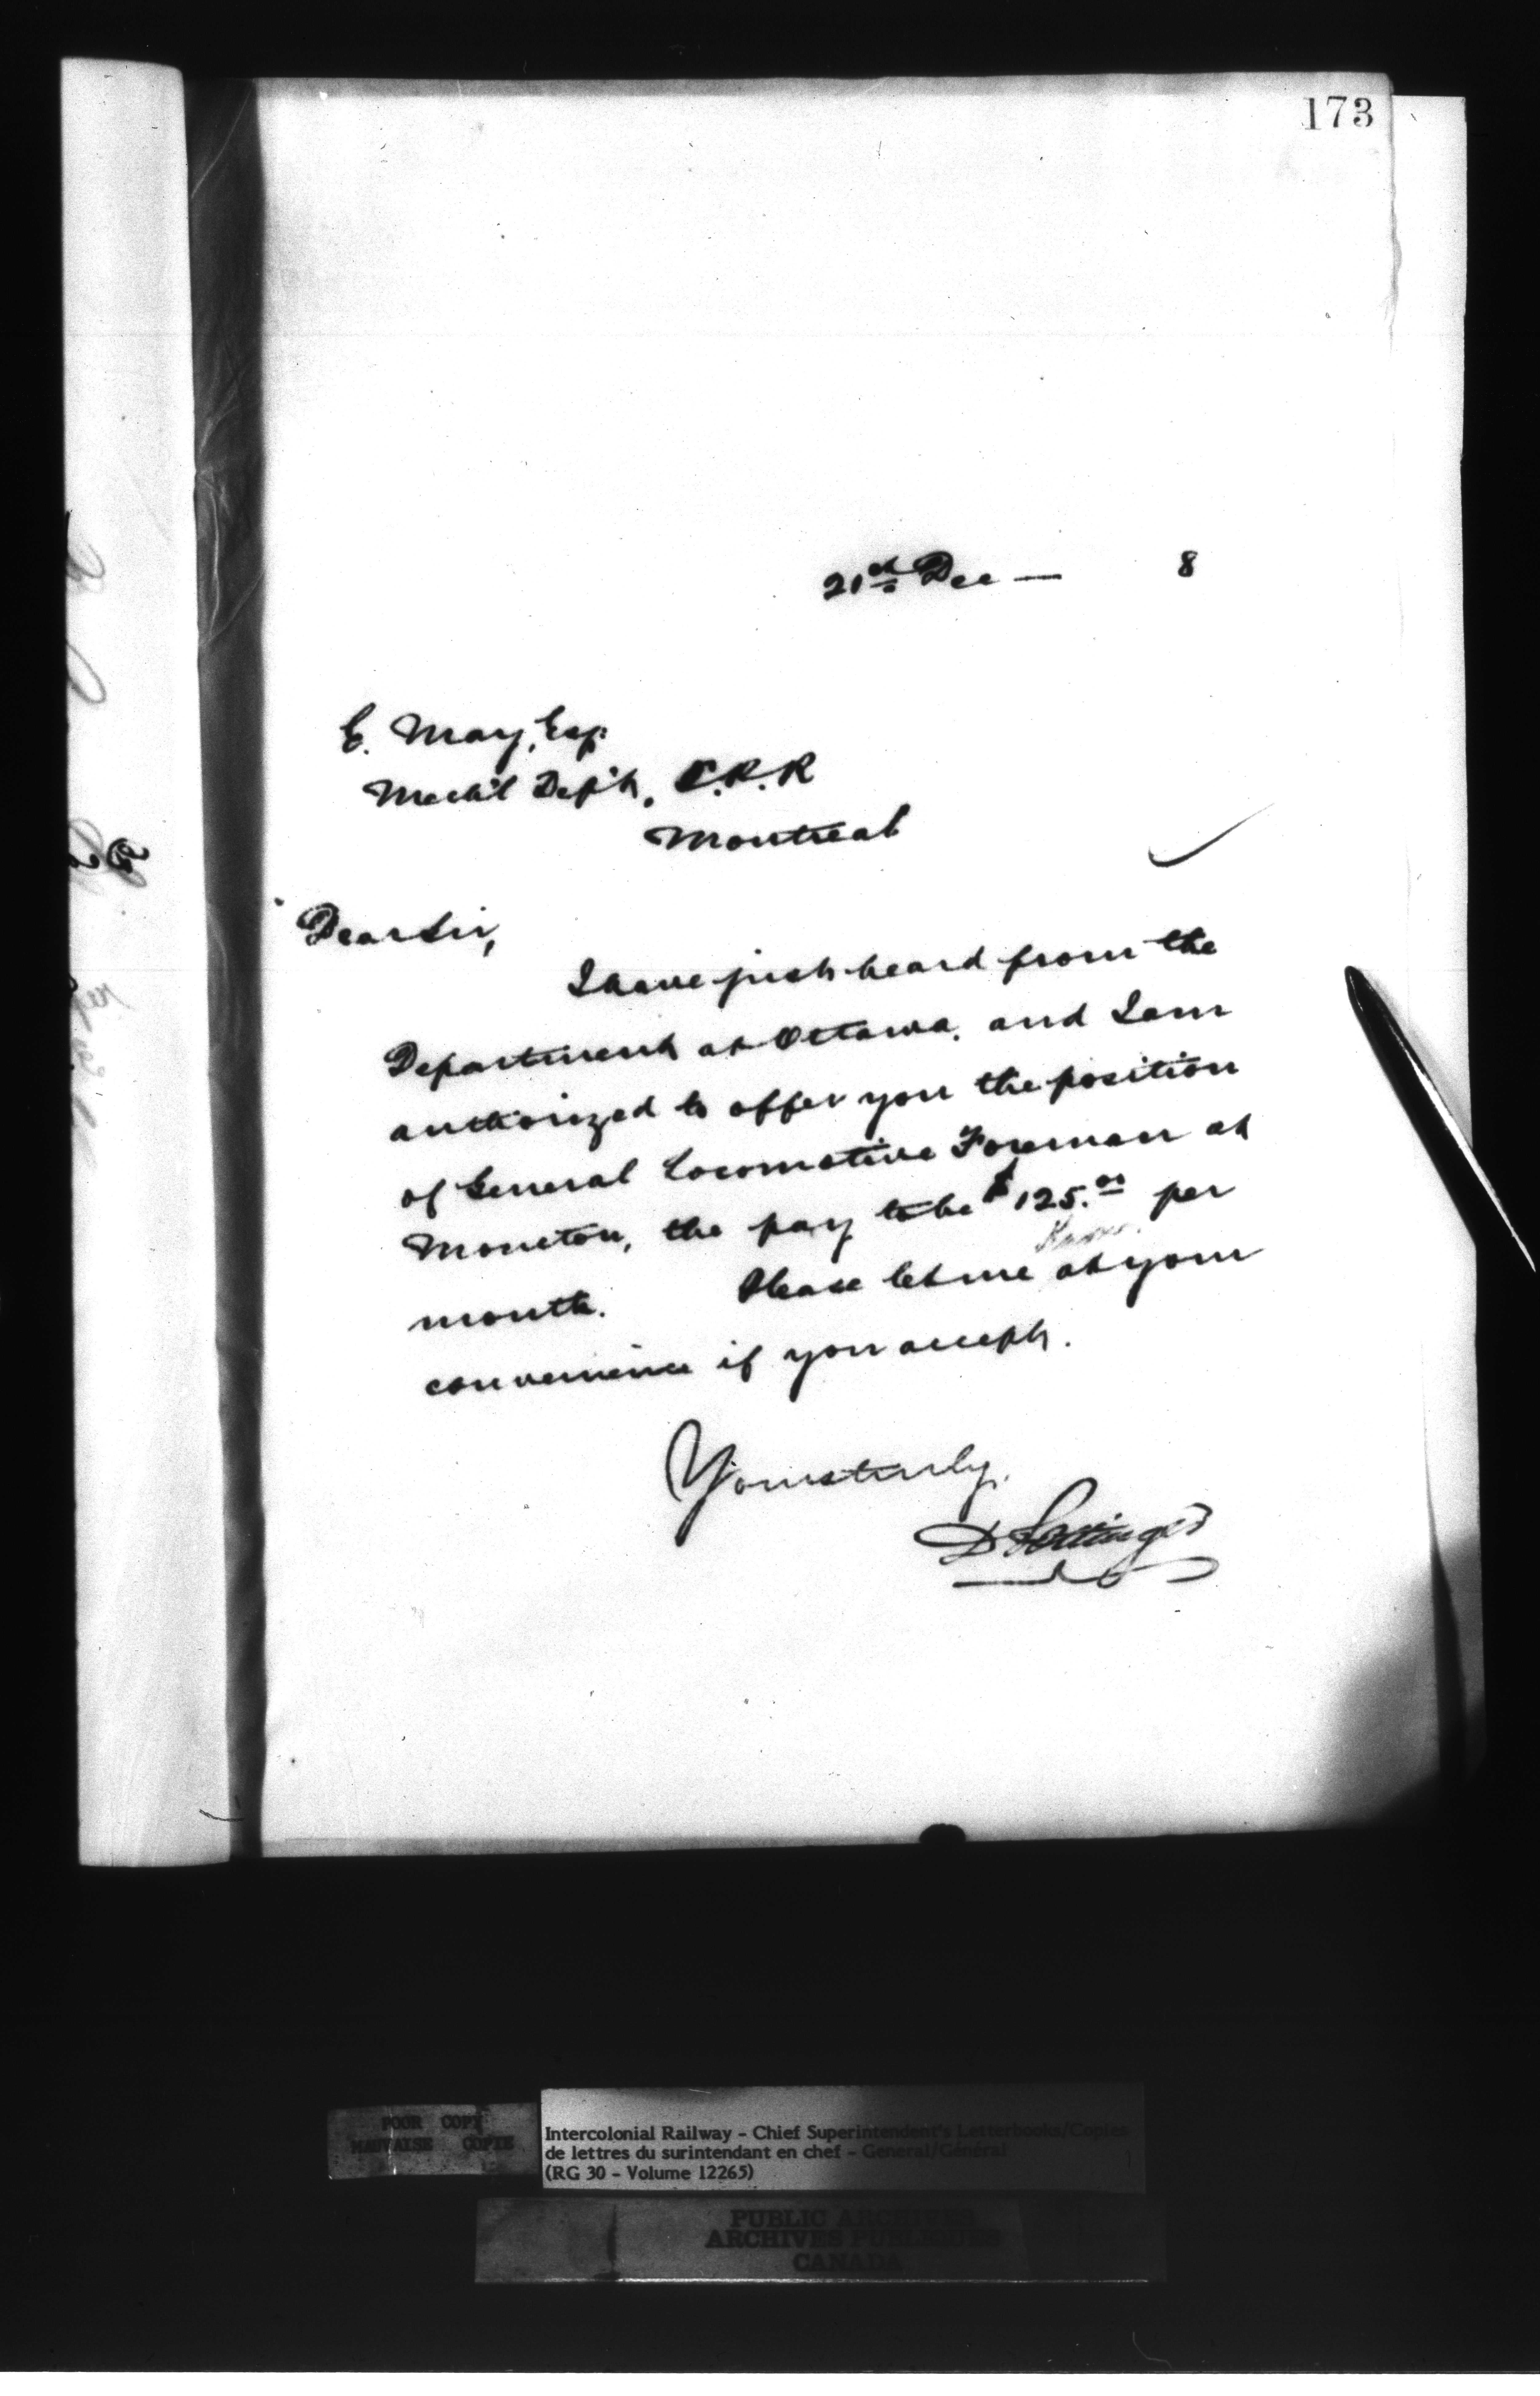 173
21st Dec — 8
E. May, Esq.
Mech'l Dep't, C.P.R
Montreal
Dear Sir,
I have just heard from the
Department at Ottawa, and I am
authorized to offer you the position
of General Locomotive Foreman at
Moncton, the pay to be $125.00 per
know
month. Please let me at your
convenience if you accept.
Yours truly,
D Pottinger
POOR COPY
MAUVAISE COPIE
Intercolonial Railway - Chief Superintendent's Letterbooks/Copies
de lettres du surintendant en chef - General/Général
(RG 30 - Volume 12265)
PUBLIC ARCHIVES
ARCHIVES PUBLIQUES
CANADA